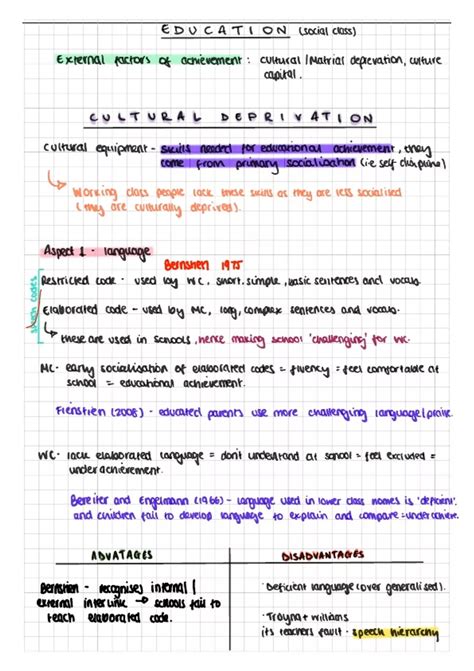 EDUCATION (social class)
External factors of achievement : cultural / Matrial deprevation, culture
capital.
CULTURAL DEPRIVATION
cultural equipment - skills needed for educational achievement, they
come from primary socialisation (ie self discipline)
↳ Working class people lack these skills as they are less socialised
(they are culturally deprived).
Aspect 1 - language
Bernstien 1975
speech codes
Restricted code - used by WC, short, simple, basic sentences and vocab.
Elaborated code - used by MC, long, complex sentences and vocab.
↳ these are used in schools, hence making school 'challenging' for WC.
MC- early socialisation of elaborated codes = fluency = feel comfortable at
school = educational achievement.
Fienstien (2008) - educated parents use more challenging language/praise.
WC- lack elaborated language = don't understand at school = feel excluded =
underachievement.
Bereiter and Engelmann (1966) - language used in lower class homes is 'deficient'
and children fail to develop language to explain and compare = underachieve.
ADVATAGES
DISADVANTAGES
Bernstien - recognises internal /
external interlink → schools fail to
teach elaborated code.
· Deficient language (over generalised).
· Troyna + williams
its teachers fault - speech hierarchy